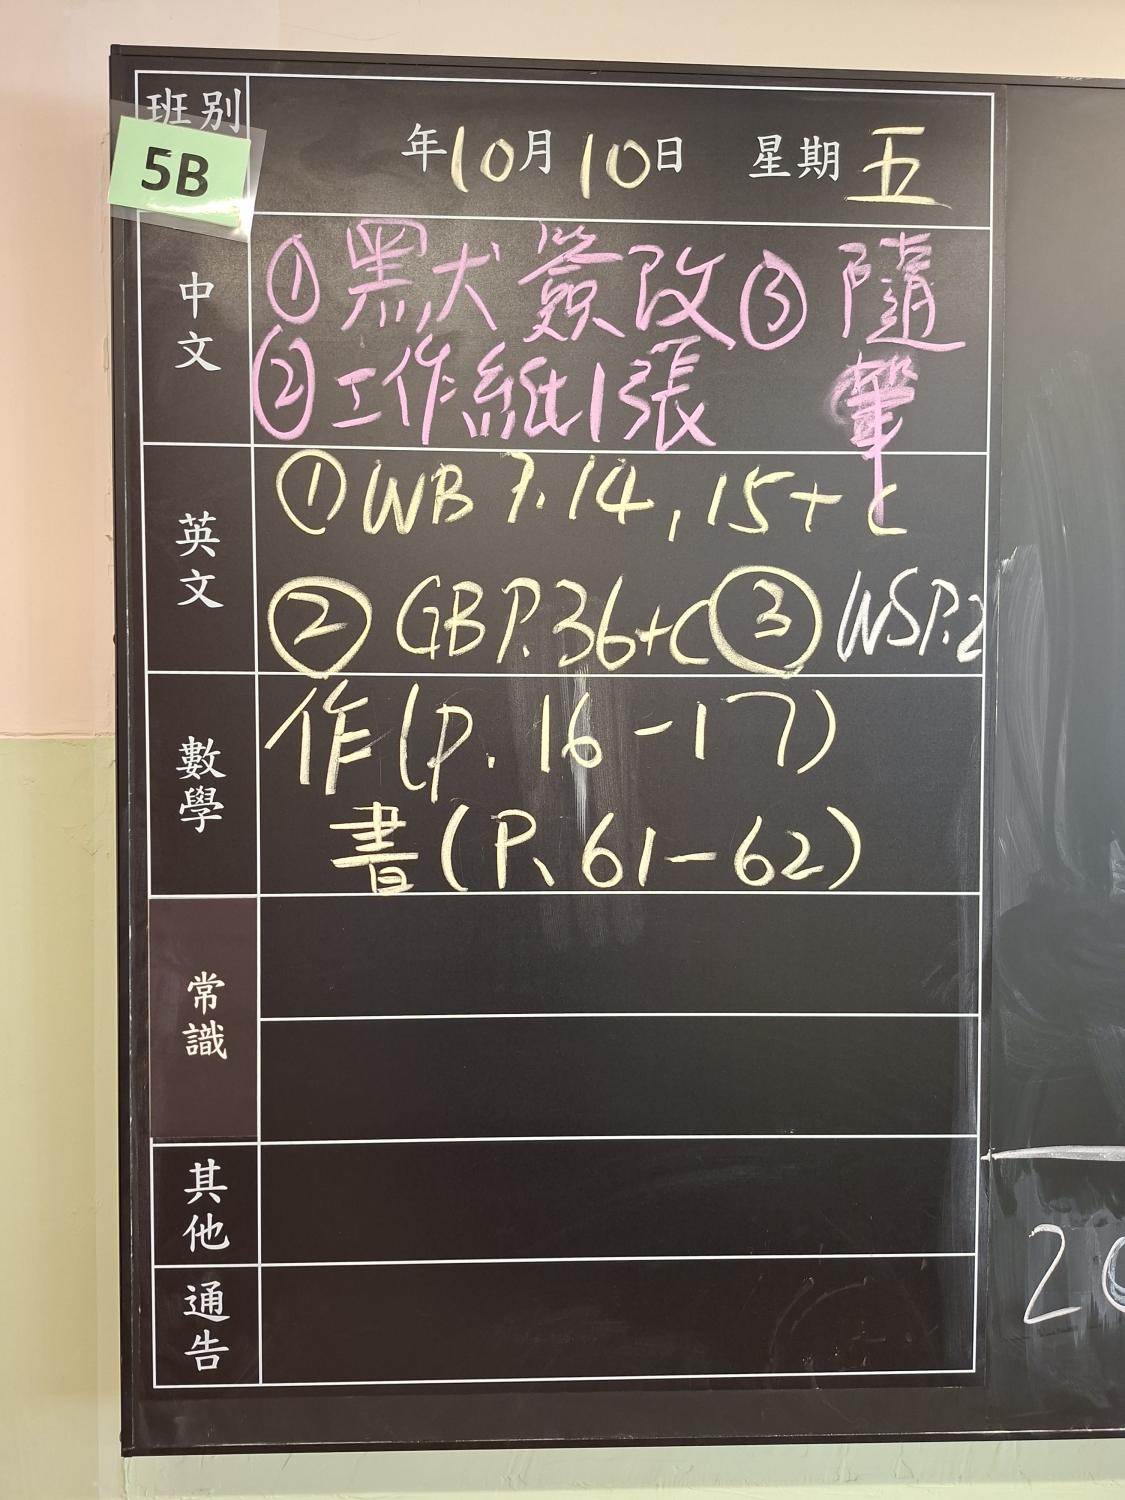 班別
5B
年10月10日 星期五
中文
①黑犬簽改③隨
②工作紙1張 筆
英文
①WB P.14,15+c
②GBP.36+c③WSP.2
數學
作(p.16-17)
書(P.61-62)
常識
其他
通告
20